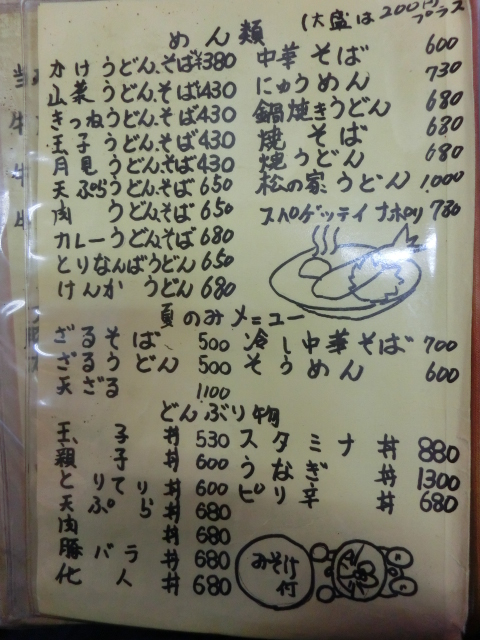 めん類
(大盛は200円プラス
かけうどん、そば¥380
山菜うどん、そば430
きつねうどん、そば430
玉子うどん、そば430
月見うどん、そば430
天ぷらうどん、そば650
肉うどん、そば650
カレーうどん、そば680
とりなんばうどん650
けんかうどん680
中華そば600
にゅうめん730
鍋焼きうどん680
焼そば680
焼うどん680
松の家うどん1,000
スパゲッテイナポリ730
夏のみメニュー
ざるそば500
ざるうどん500
天ざる1100
冷し中華そば700
そうめん600
どんぶり物
玉子丼530
親子丼600
とりて丼600
天ぷら丼680
肉丼680
豚バラ丼680
化人丼680
スタミナ丼880
うなぎ丼1300
ピリ辛丼680
みそ汁付